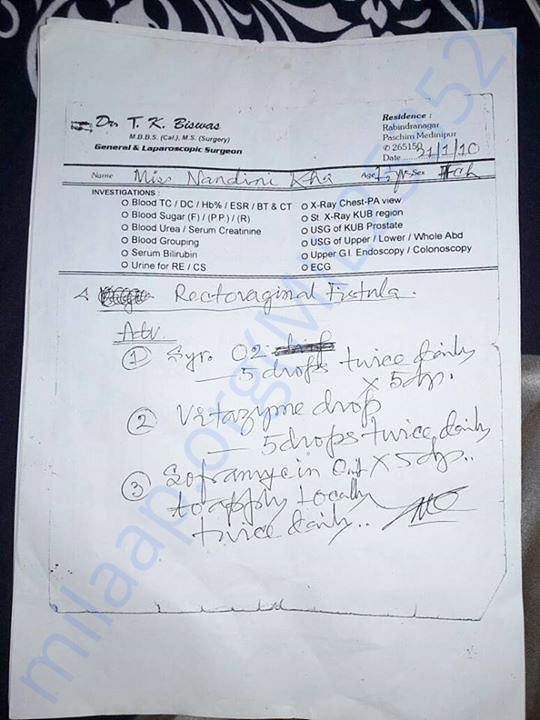 Dr. T. K. Biswas
M.B.B.S. (Cal.), M.S. (Surgery)
General & Laparoscopic Surgeon
Residence :
Rabindranagar
Paschim Medinipur
✆ 265150
Date 31/1/10
Name Miss Nandini Kha Age Sex
INVESTIGATIONS :
O Blood TC / DC / Hb% / ESR / BT & CT
O Blood Sugar (F) / (P.P.) / (R)
O Blood Urea / Serum Creatinine
O Blood Grouping
O Serum Bilirubin
O Urine for RE / CS
O X-Ray Chest-PA view
O St. X-Ray KUB region
O USG of KUB Prostate
O USG of Upper / Lower / Whole Abd
O Upper G.I. Endoscopy / Colonoscopy
O ECG
Rectovaginal Fistula.
Adv
① Syr. O2
— 5 drops twice daily
x 5 dys.
② Vitazyme drop
— 5 drops twice daily
x 5 dys..
③ Soframycin Oint
to apply locally
twice daily..
milaap.org